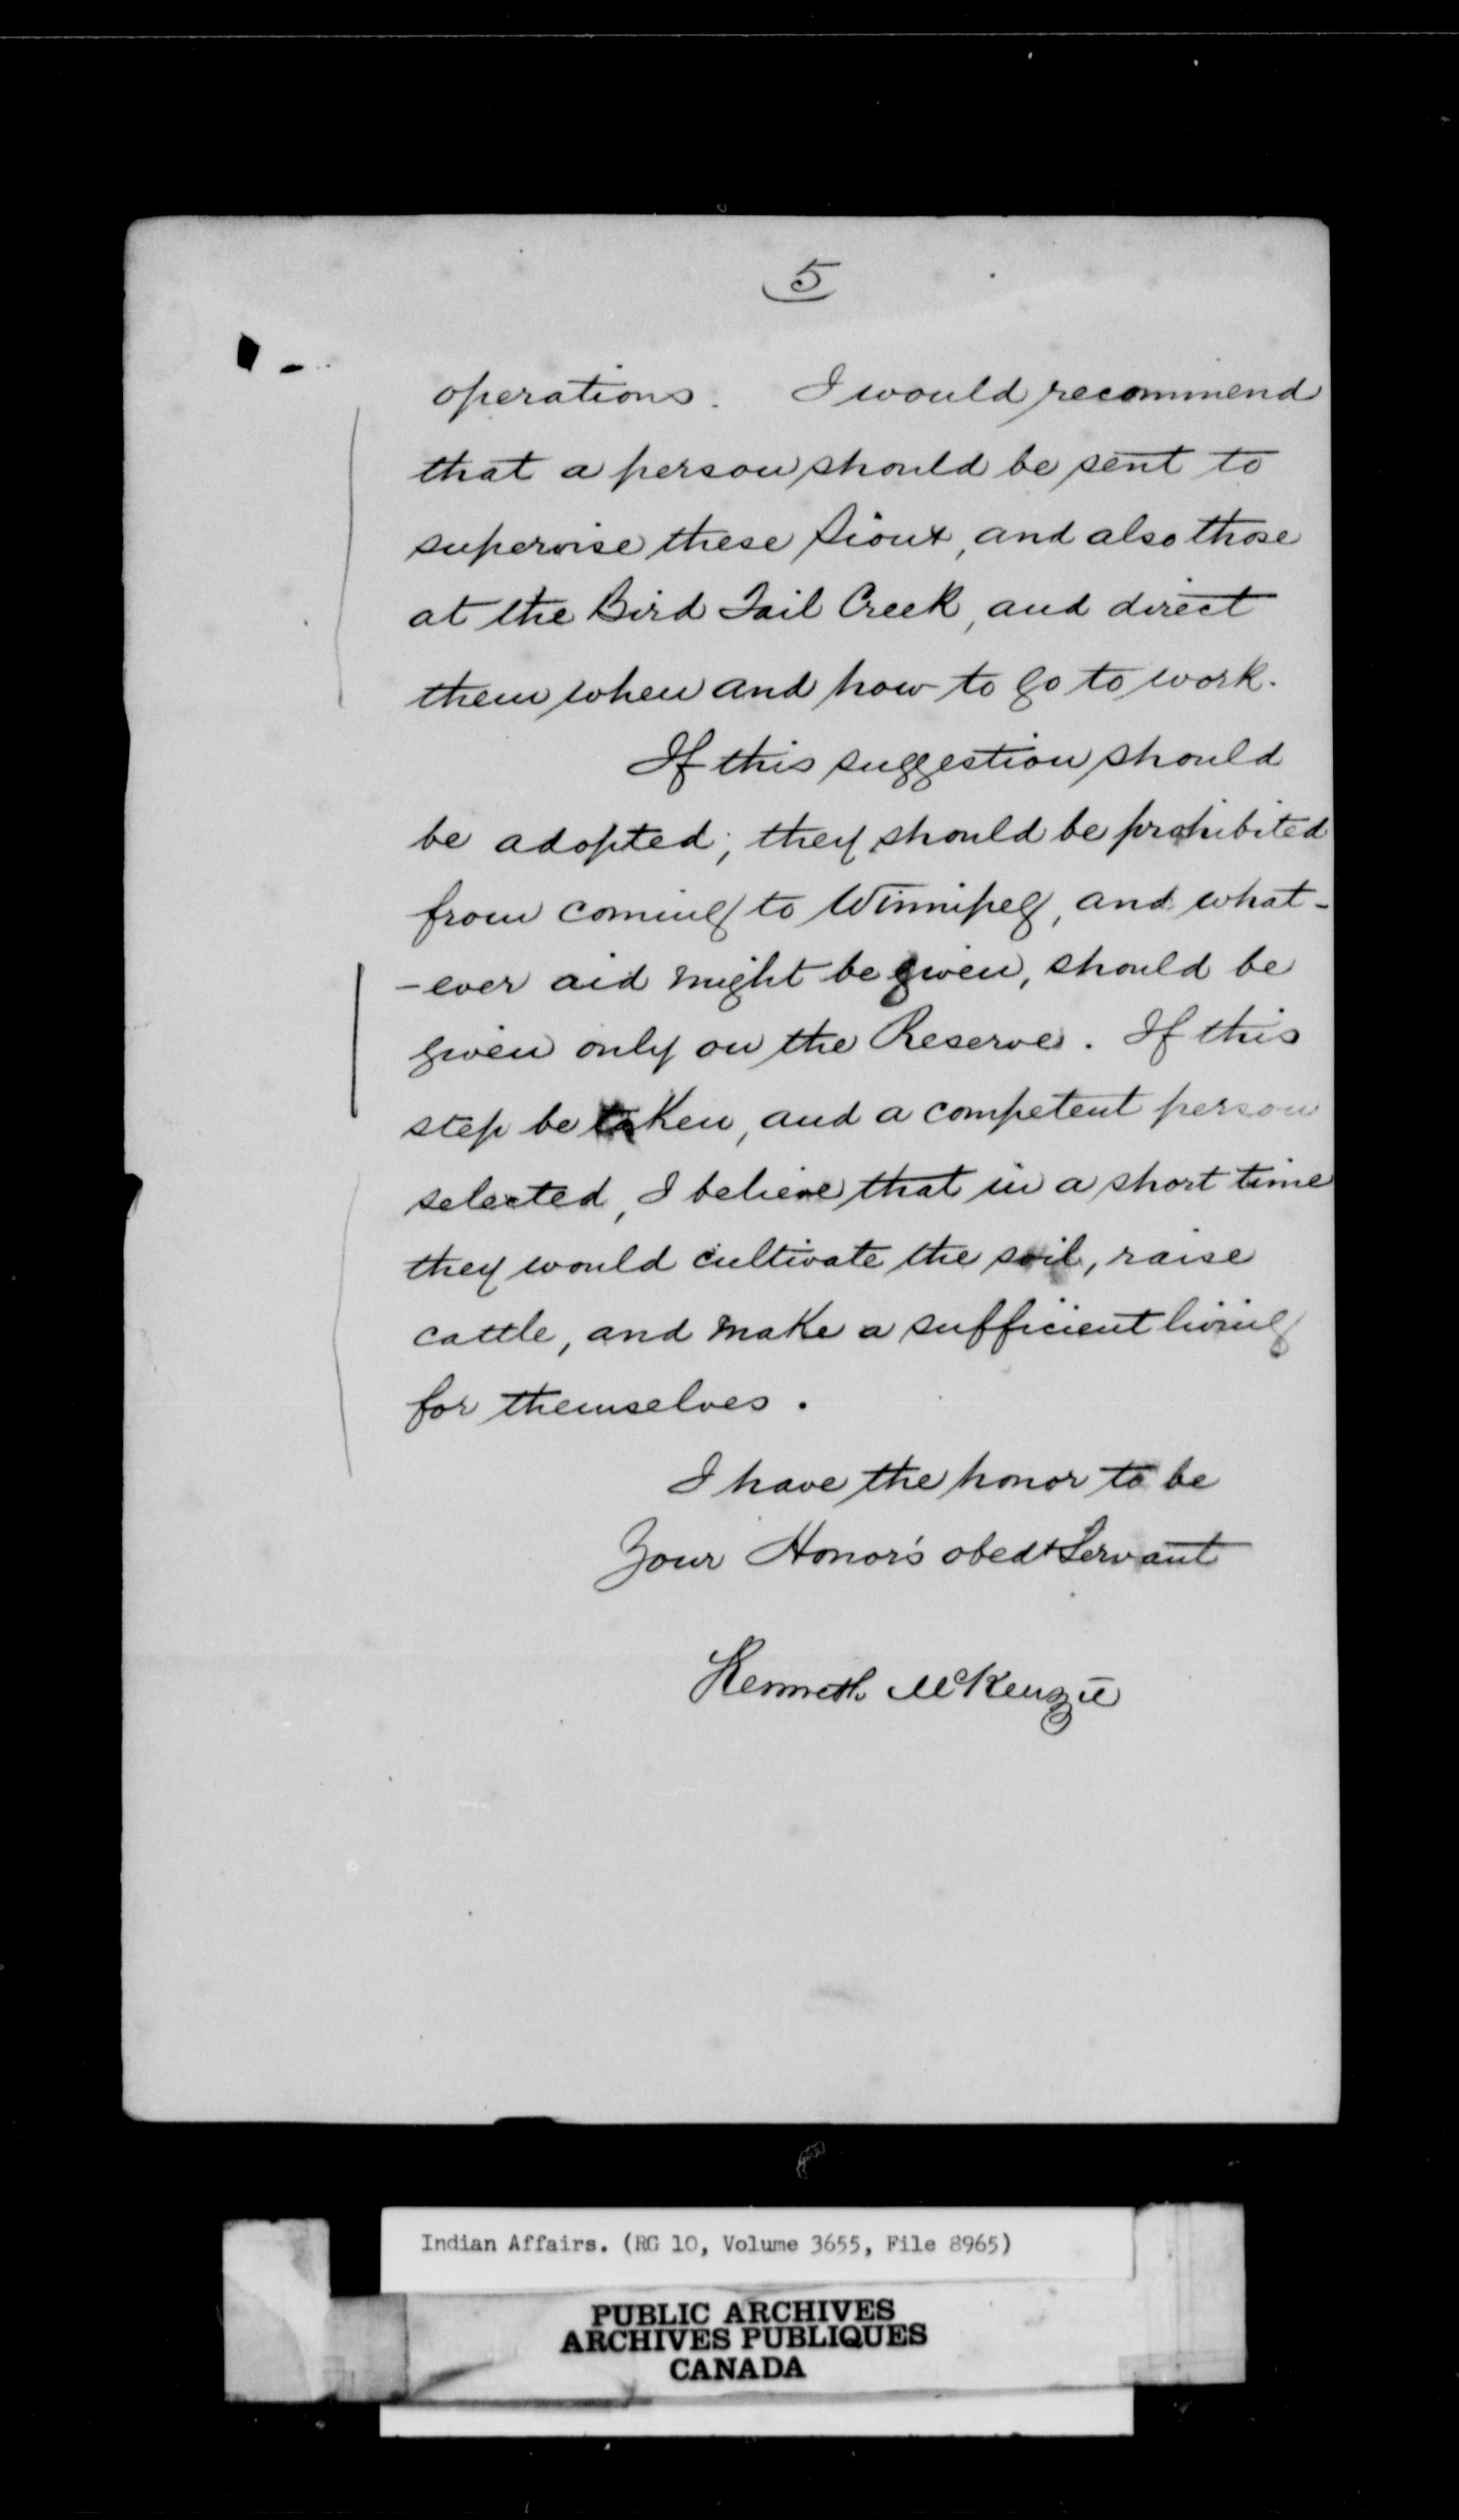 5
operations. I would recommend
that a person should be sent to
supervise these Sioux, and also those
at the Bird Tail Creek, and direct
them when and how to go to work.
If this suggestion should
be adopted; they should be prohibited
from coming to Winnipeg, and what-
-ever aid might be given, should be
given only on the Reserve. If this
step be taken, and a competent person
selected, I believe that in a short time
they would cultivate the soil, raise
cattle, and make a sufficient living
for themselves.
I have the honor to be
Your Honor's obedt Servant
Kenneth McKenzie
Indian Affairs. (RG 10, Volume 3655, File 8965)
PUBLIC ARCHIVES
ARCHIVES PUBLIQUES
CANADA